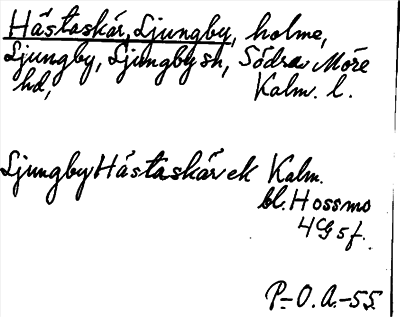 Hästaskär, Ljungby, holme,
Ljungby, Ljungby sn, Södra Möre
hd, Kalm. l.
Ljungby Hästaskär ek Kalm.
bl. Hossmo
4 G 5 f.
P-O. A.-55